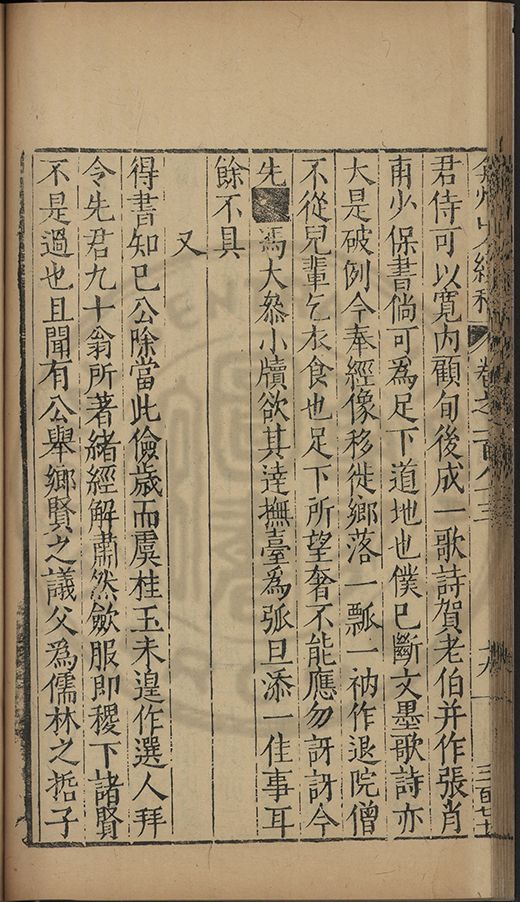 卷之一百八十三
君侍可以寬內顧旬後成一歌詩賀老伯并作張肖
甫少保書倘可爲足下道地也僕已斷文墨歌詩亦
大是破例今奉經像移徙鄉落一瓢一衲作退院僧
不從兒輩乞衣食也足下所望奢不能應勿訝訝今
先 馮大叅小牘欲其達撫臺爲弧旦添一佳事耳
餘不具
又
得書知已公除當此儉歲而虞桂玉未遑作選人拜
令先君九十翁所著緒經解肅然歛服即稷下諸賢
不是過也且聞有公舉鄉賢之議父爲儒林之哲子